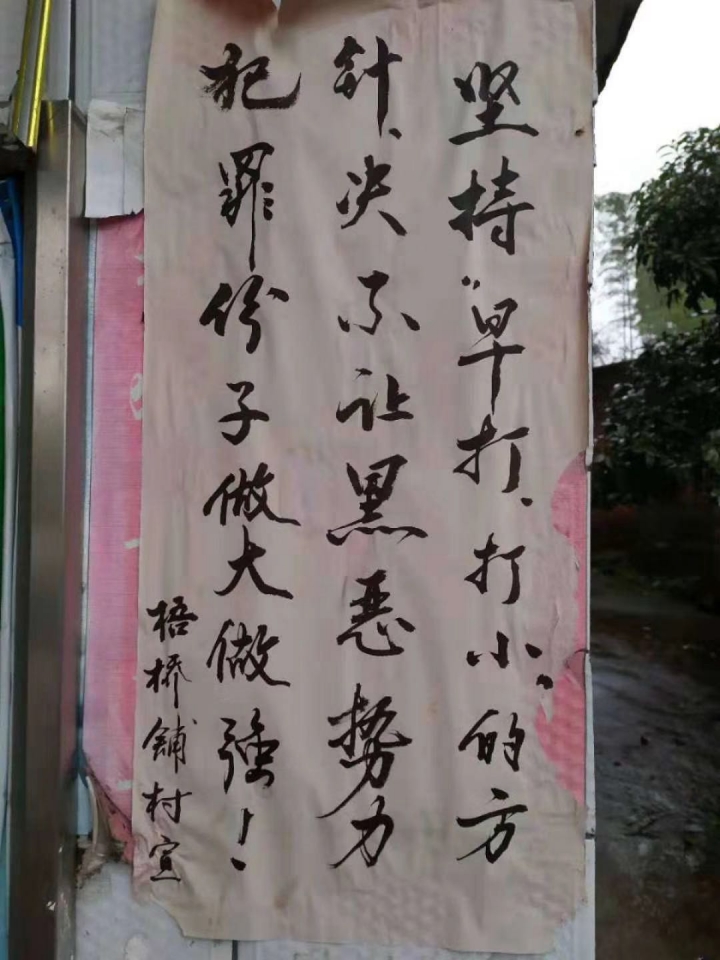 坚持“早打、打小”的方
针、决不让黑恶势力
犯罪份子做大做强！
梧桥铺村宣